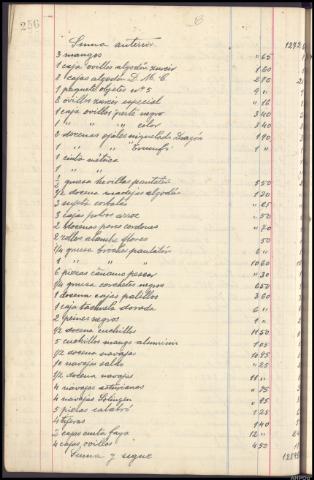 256
6
Suma anterior 1292
3 mangos " 65
1 caja ovillos algodón zurcir 1 60
2 cajas algodón D. M. C
1 paquete objetos nº 5 9 "
8 ovillos zurcir especial " 16
1 caja ovillos perlé negro 3 40
1 " " " color 3 40
2 docenas ojales niquelados Dragón 1 90
1 " " " 1 "
1 cinta métrica
1 " "
1/2 gruesa hevillas pantalón 5 50
1/2 docena madejas algodón 1 20
3 sujeta corbatas " 65
3 cajas polvos arroz " 50
2 docenas pares cordones " 70
2 rollos alambre flores 50
1/4 gruesa broches pantalón 6 "
1 " " " 10 60
6 piezas cáñamo pescar " 30
1/4 gruesa corchetes negros 6 50
1 docena cajas palillos 3 60
1 caja tachuela dorada 6 "
2 peines negros 1 "
1/2 docena cuchillos 11 50
5 cuchillos mango aluminio 1 05
1/2 docena navajas 10 95
10 navajas " 25
1/2 docena navajas 11 "
4 navajas asturianas " 95
4 navajas Solingen " 95
5 piezas 1 25
4 tijeras 1 40
2 cajas cinta faya 12 "
4 cajas ovillos 4 50
Suma y sigue